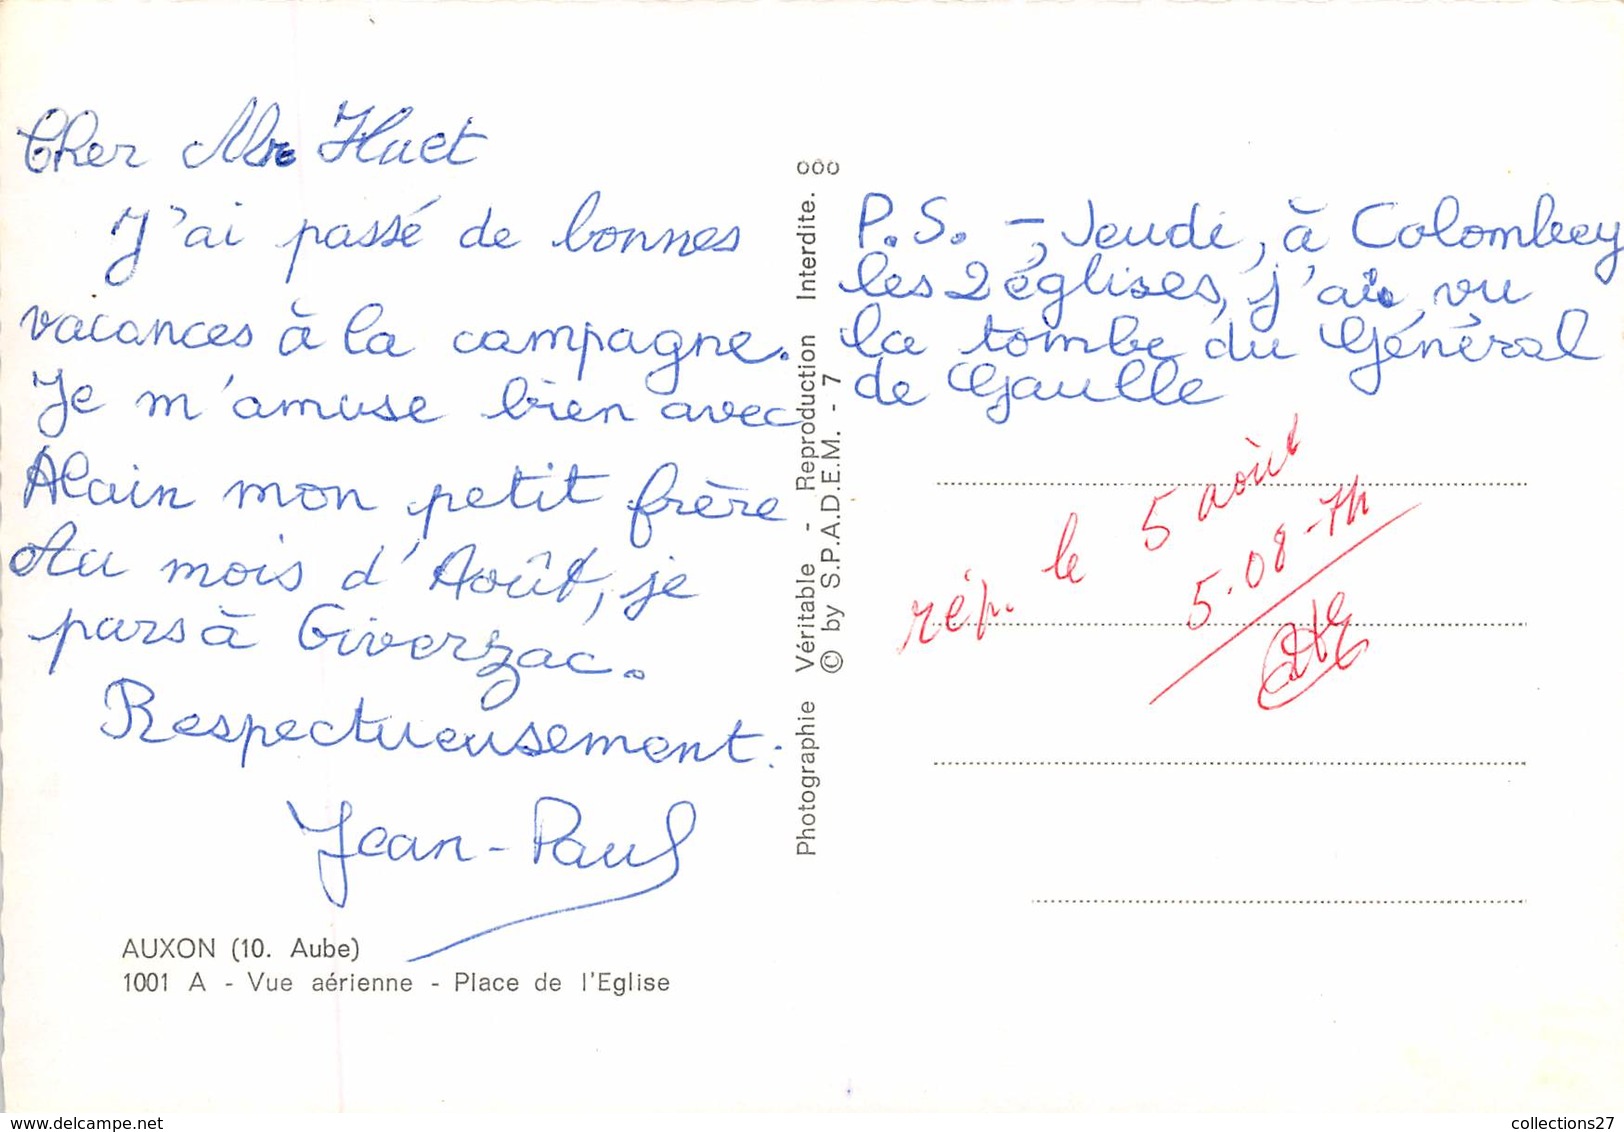 Cher Mr Huet
J'ai passé de bonnes
vacances à la campagne.
Je m'amuse bien avec
Alain mon petit frère
Au mois d'Août, je
pars à Giverzac.
Respectueusement:
Jean-Paul
AUXON (10. Aube)
1001 A - Vue aérienne - Place de l'Eglise
Photographie Véritable - Reproduction Interdite. ooo
© by S.P.A.D.E.M. - 7
P.S. -, Jeudi, à Colombey
les 2 églises, j'ai vu
la tombe du Général
de Gaulle
rép. le 5 août
5.08-74
collections27